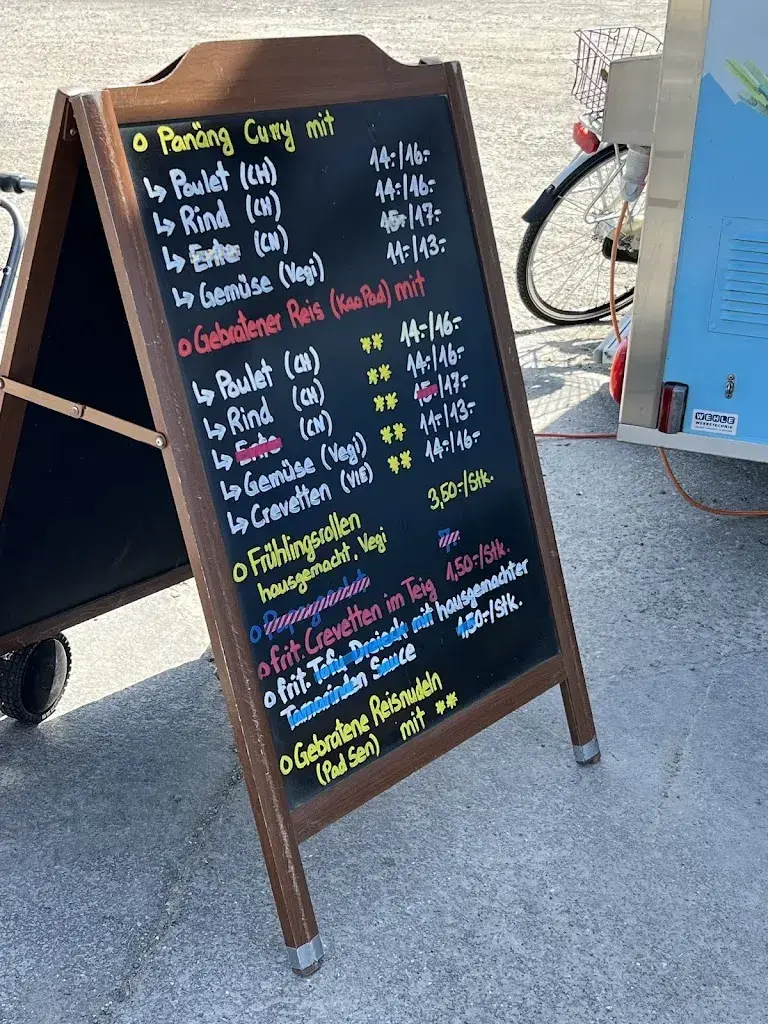 o Panäng Curry mit
↳ Poulet (CH) 14.-/16.-
↳ Rind (CH) 14.-/16.-
↳ Ente (CN) 15.-/17.-
↳ Gemüse (Vegi) 11.-/13.-
o Gebratener Reis (Kao Pad) mit
↳ Poulet (CH) ** 14.-/16.-
↳ Rind (CH) ** 14.-/16.-
↳ Ente (CN) ** 15.-/17.-
↳ Gemüse (Vegi) ** 11.-/13.-
↳ Crevetten (VIE) ** 14.-/16.-
o Frühlingsrollen 3,50.-/Stk.
hausgemacht, Vegi
o Papayasalat 7.-
o frit. Crevetten im Teig 1,50.-/Stk.
o frit. Tofu Dreieck mit hausgemachter
Tamarinden Sauce 1,50-/Stk.
o Gebratene Reisnudeln
(Pad Sen) mit **
WEHLE
WERBETECHNIK